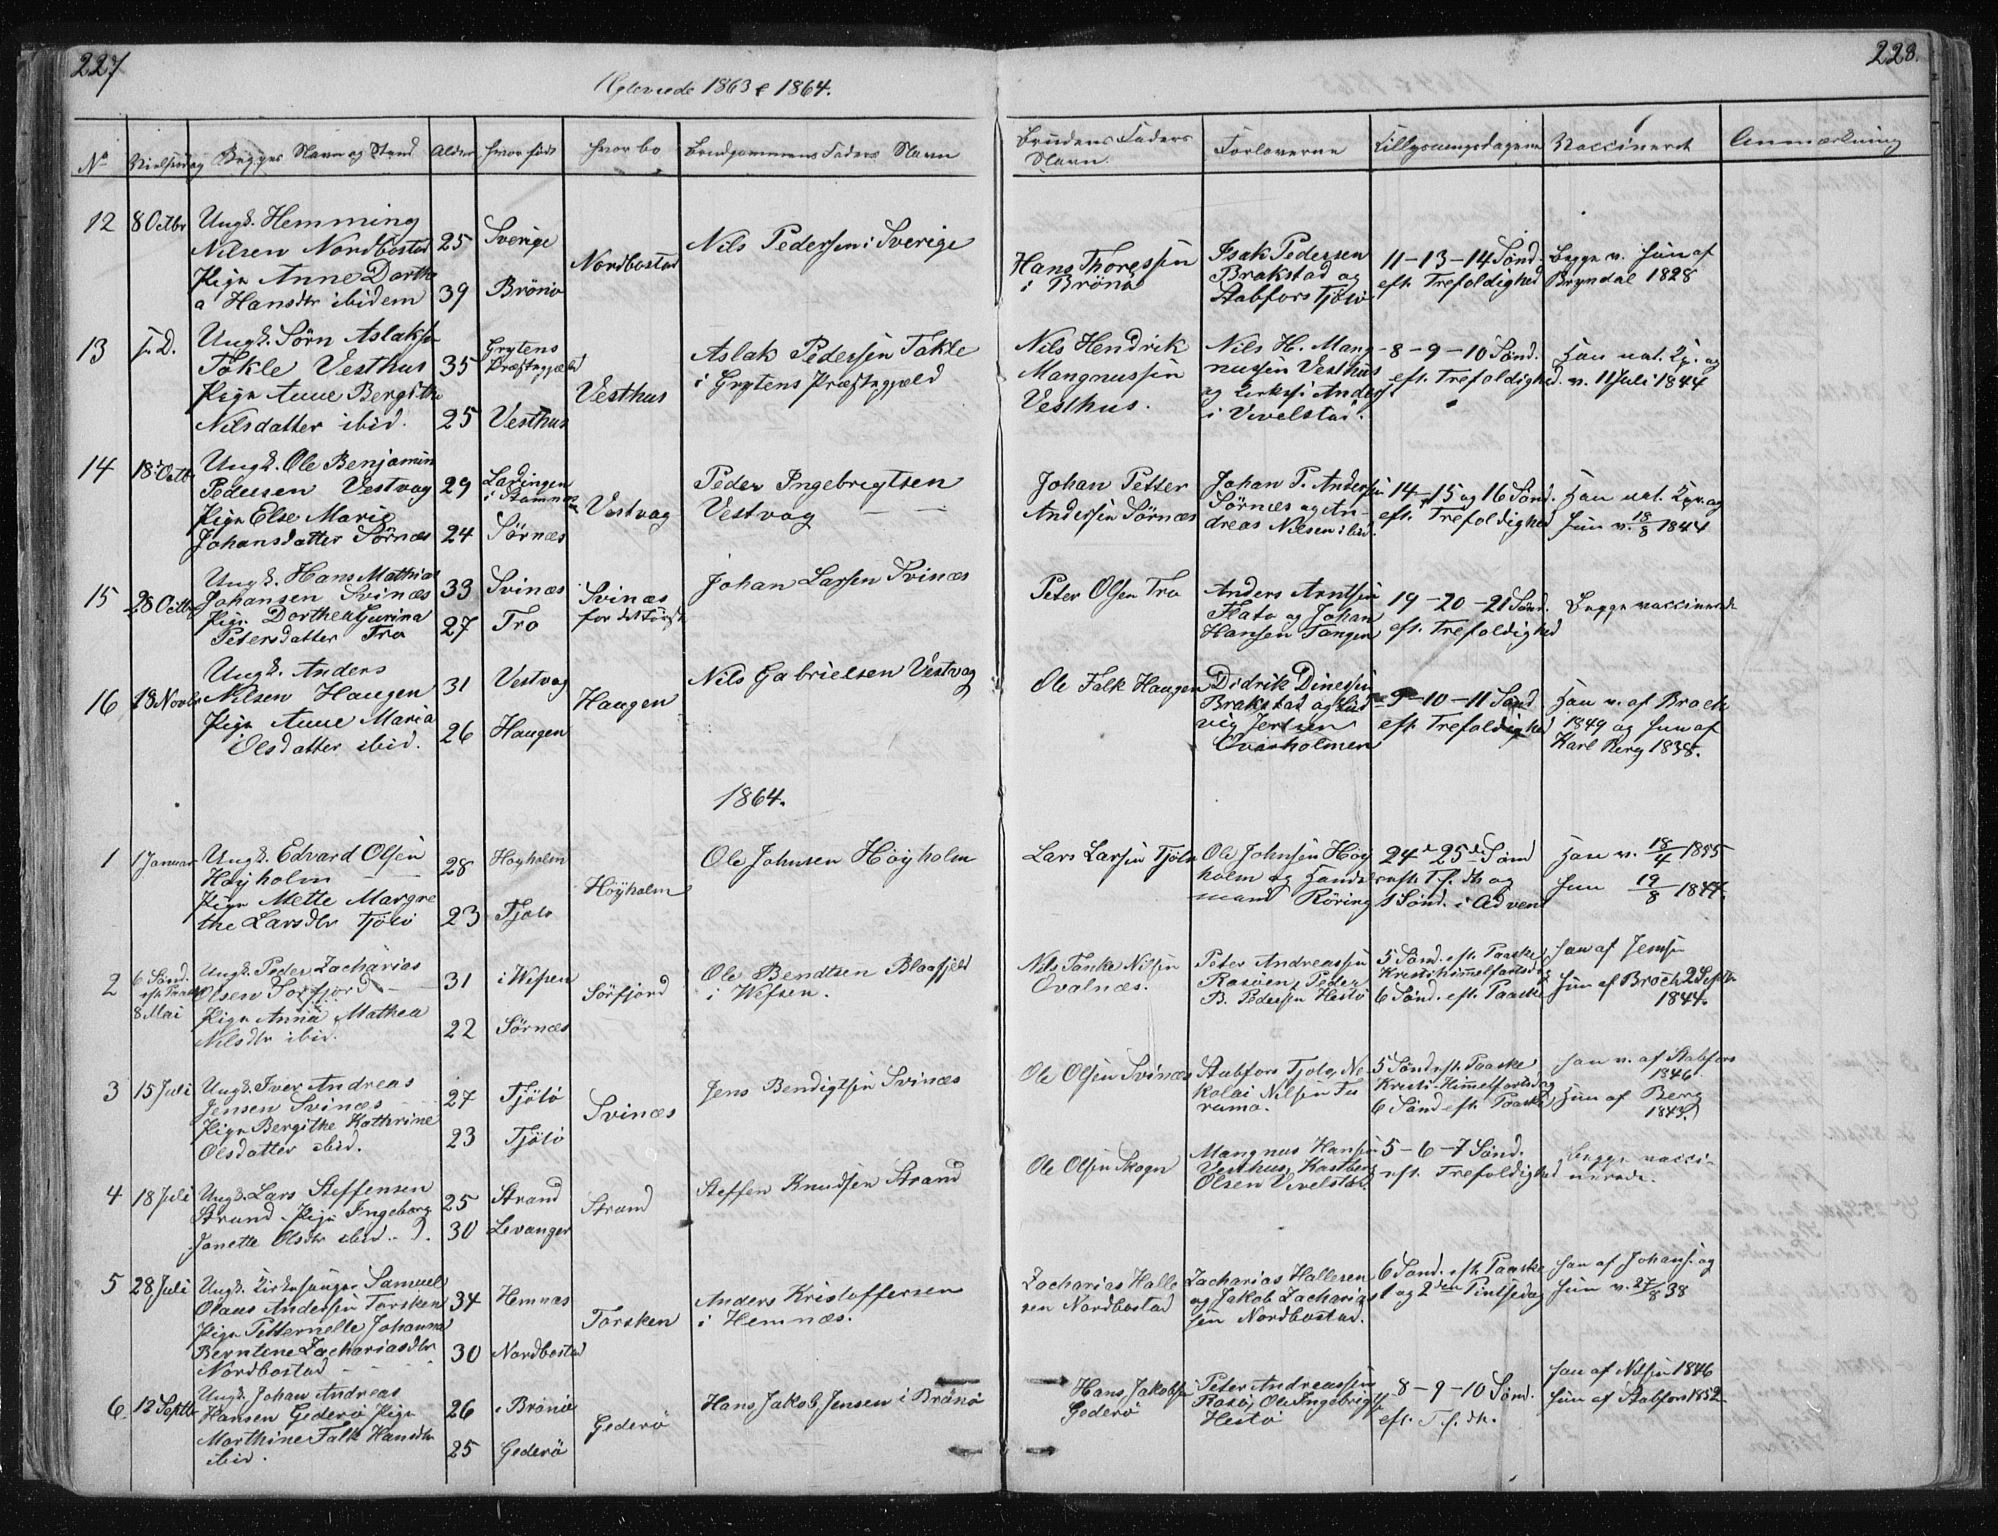 227
228.
Egteviede 1863 & 1864.
No
Vielsesdag
Begges Navn og Stand
Alder
hvor født
hvor bo
Brudgommens Faders Navn
Brudens Faders
Navn.
Forloverne
Tillysningsdagene
Vaccineret
Anmærkning
12
8 Octbr
Ungk. Hemming
Nilsen Nordbostad
Pige Anne Dorthe
a Hansdtr ibidem
25
39
Sverige
Brönö
Nordbostad
Nils Pedersen i Sverige
Hans Thoressen
i Brönö
Isak Pedersen
Brakstad og
Aabfors Tjötö
11-13-14 Sönd.
eft. Trefoldighed
Begge v. hun af
Bryndal 1828
13
s. D.
Ungk. Sörn Aslaks
Tökle Vesthus
Pige Anne Bergithe
Nilsdatter ibid.
35
25
Grytens
Præstegjæld
Vesthus
Vesthus
Aslak Pedersen Tökle
i Grytens Præstegjæld
Nils Hendrik
Mangnussen
Vesthus.
Nils H. Mang
nussen Vesthus
og Anders
i Vevelstad.
8-9-10 Sönd.
eft. Trefoldighed.
Han nat. Kp. og
v. 11 Juli 1844
14
18 Octb
Ungk. Ole Benjamin
Pedersen Vestvag
Pige Else Marie
Johansdatter Sörnæs
29
24
Lödingen
i Hamnæs
Sörnæs
Vestvag
Peder Ingebrigtsen
Vestvag — —
Johan Petter
Andersen Sörnæs
Johan P. Andersen
Sörnæs og An-
dreas Nilsen ibid.
14-15 og 16 Sönd.
eft. Trefoldighed
Han nat. Kp. og
hun v. 18/8 1844
15
28 Octbr
Ungk. Hans Mathias
Johansen Svinæs
Pige Dorthea Gurina
Petersdatter Tro
33
27
Svinæs
Tro
Svinæs
for det förste
Johan Larsen Svinæs
Peter Olsen Tro
Anders Arntsen
Flatö og Johan
Hansen Tangen
19-20-21 Sönd.
eft. Trefoldighed
Begge vaccinerede
16
18 Novbr
Ungk. Anders
Nilsen Haugen
Pige Anne Maria
Olsdatter ibid.
31
26
Vestvag
Haugen
Haugen
Nils Gabrielsen Vestvag
Ole Falk Haugen
Didrik Dinessen
Brakstad og Lud
vig Jertsen
Ovarholmen
9-10-11 Sönd
eft. Trefoldighed
Han v. af Broch
1849 og hun af
Karl Berg 1838.
1864.
1
1 Januar
Ungk. Edvard Olsen
Höyholm
Pige Mette Margre
the Larsdtr Tjötö
28
23
Höyholm
Tjötö
Höyholm
Ole Johnsen Höyholm
Lars Larsen Tjötö
Ole Johnsen Höy
holm og Handels
mand Röring
24 25 Sönd
eft. T.f.dh og
1 Sönd. i Advent
Han v. 18/4 1855
Hun 19/8 1844.
2
6 Sönd.
eft. Paaske
8 Mai
Ungk. Peder Zacharias
Olsen Sörfjord —
Pige Anna Mathea
Nilsdtr ibid.
31
22
i Wefsen
Sörnæs
Sörfjord
Ole Bendtsen Blaafjeld
i Wefsen.
Nils Tanke Nilsen
Ovalnæs.
Peter Andreassen
Rosöen, Peder
B. Pedersen Hestö
5 Sönd. eft. Paaske,
Kristi himmelfartsdag
6 Sönd. eft. Paaske
Han af Jensen
Hun af Broch 2 Septbr
1844.
3
15 Juli
Ungk. Iver Andreas
Jensen Svinæs
Pige Bergithe Kathrine
Olsdatter ibid.
27
23
Tjötö
Tjötö
Svinæs
Jens Bendigtsen Svinæs
Ole Olsen Svinæs
Aabfors Tjötö, Ne-
kolai Nilsen Fu
rumo.
5 Sönd eft. Paaske,
Kristi Himmelfartsdag
6 Sönd eft. Paaske
Han v. af Aabfors
1846.
Hun af Berg
4
18 Juli
Ungk. Lars Steffensen
Strand. Pige Ingeborg
Janette Olsdtr ibid.
25
30
Strand
Levanger
Strand
Steffen Knudsen Strand
Ole Olsen Skogn
Mangnus Hansen
Vesthus, Kastberg
Olsen Vevelstad.
5-6-7 Sönd.
eft. Trefoldighed
Begge vacci-
nerede.
5
28 Juli
Ungk. Kirkesanger Samuel
Olaus Andersen Torsken
Pige Petternelle Johanna
Berntine Zachariasdtr
Nordbostad
34
30
Hemnæs
Nordbostad
Torsken
Anders Kristoffersen
i Hemnæs.
Zacharias Halle
sen Nordbostad
Zacharias Hallesen
og Jakob Zacharias
sen Nordbostad.
6 Sönd. eft. Paaske
1 og 2den Pintsedag
Han af Johans. og
Hun v. 27/8 38
6.
12 Septbr
Ungk. Johan Andreas
Hansen Gederö Pige
Marthine Falk Hansdtr
ibid.
26
25
i Brönö
Gederö
Gederö
Hans Jakob Jensen i Brönö
Hans Jakobsen
Gederö
Peter Andreassen
Rosö, Ole Ingebrigts
Hestö
8-9-10 Sönd.
eft. T.f.dh.
Han af Nilsen 1846
Hun af Aabfors 1852